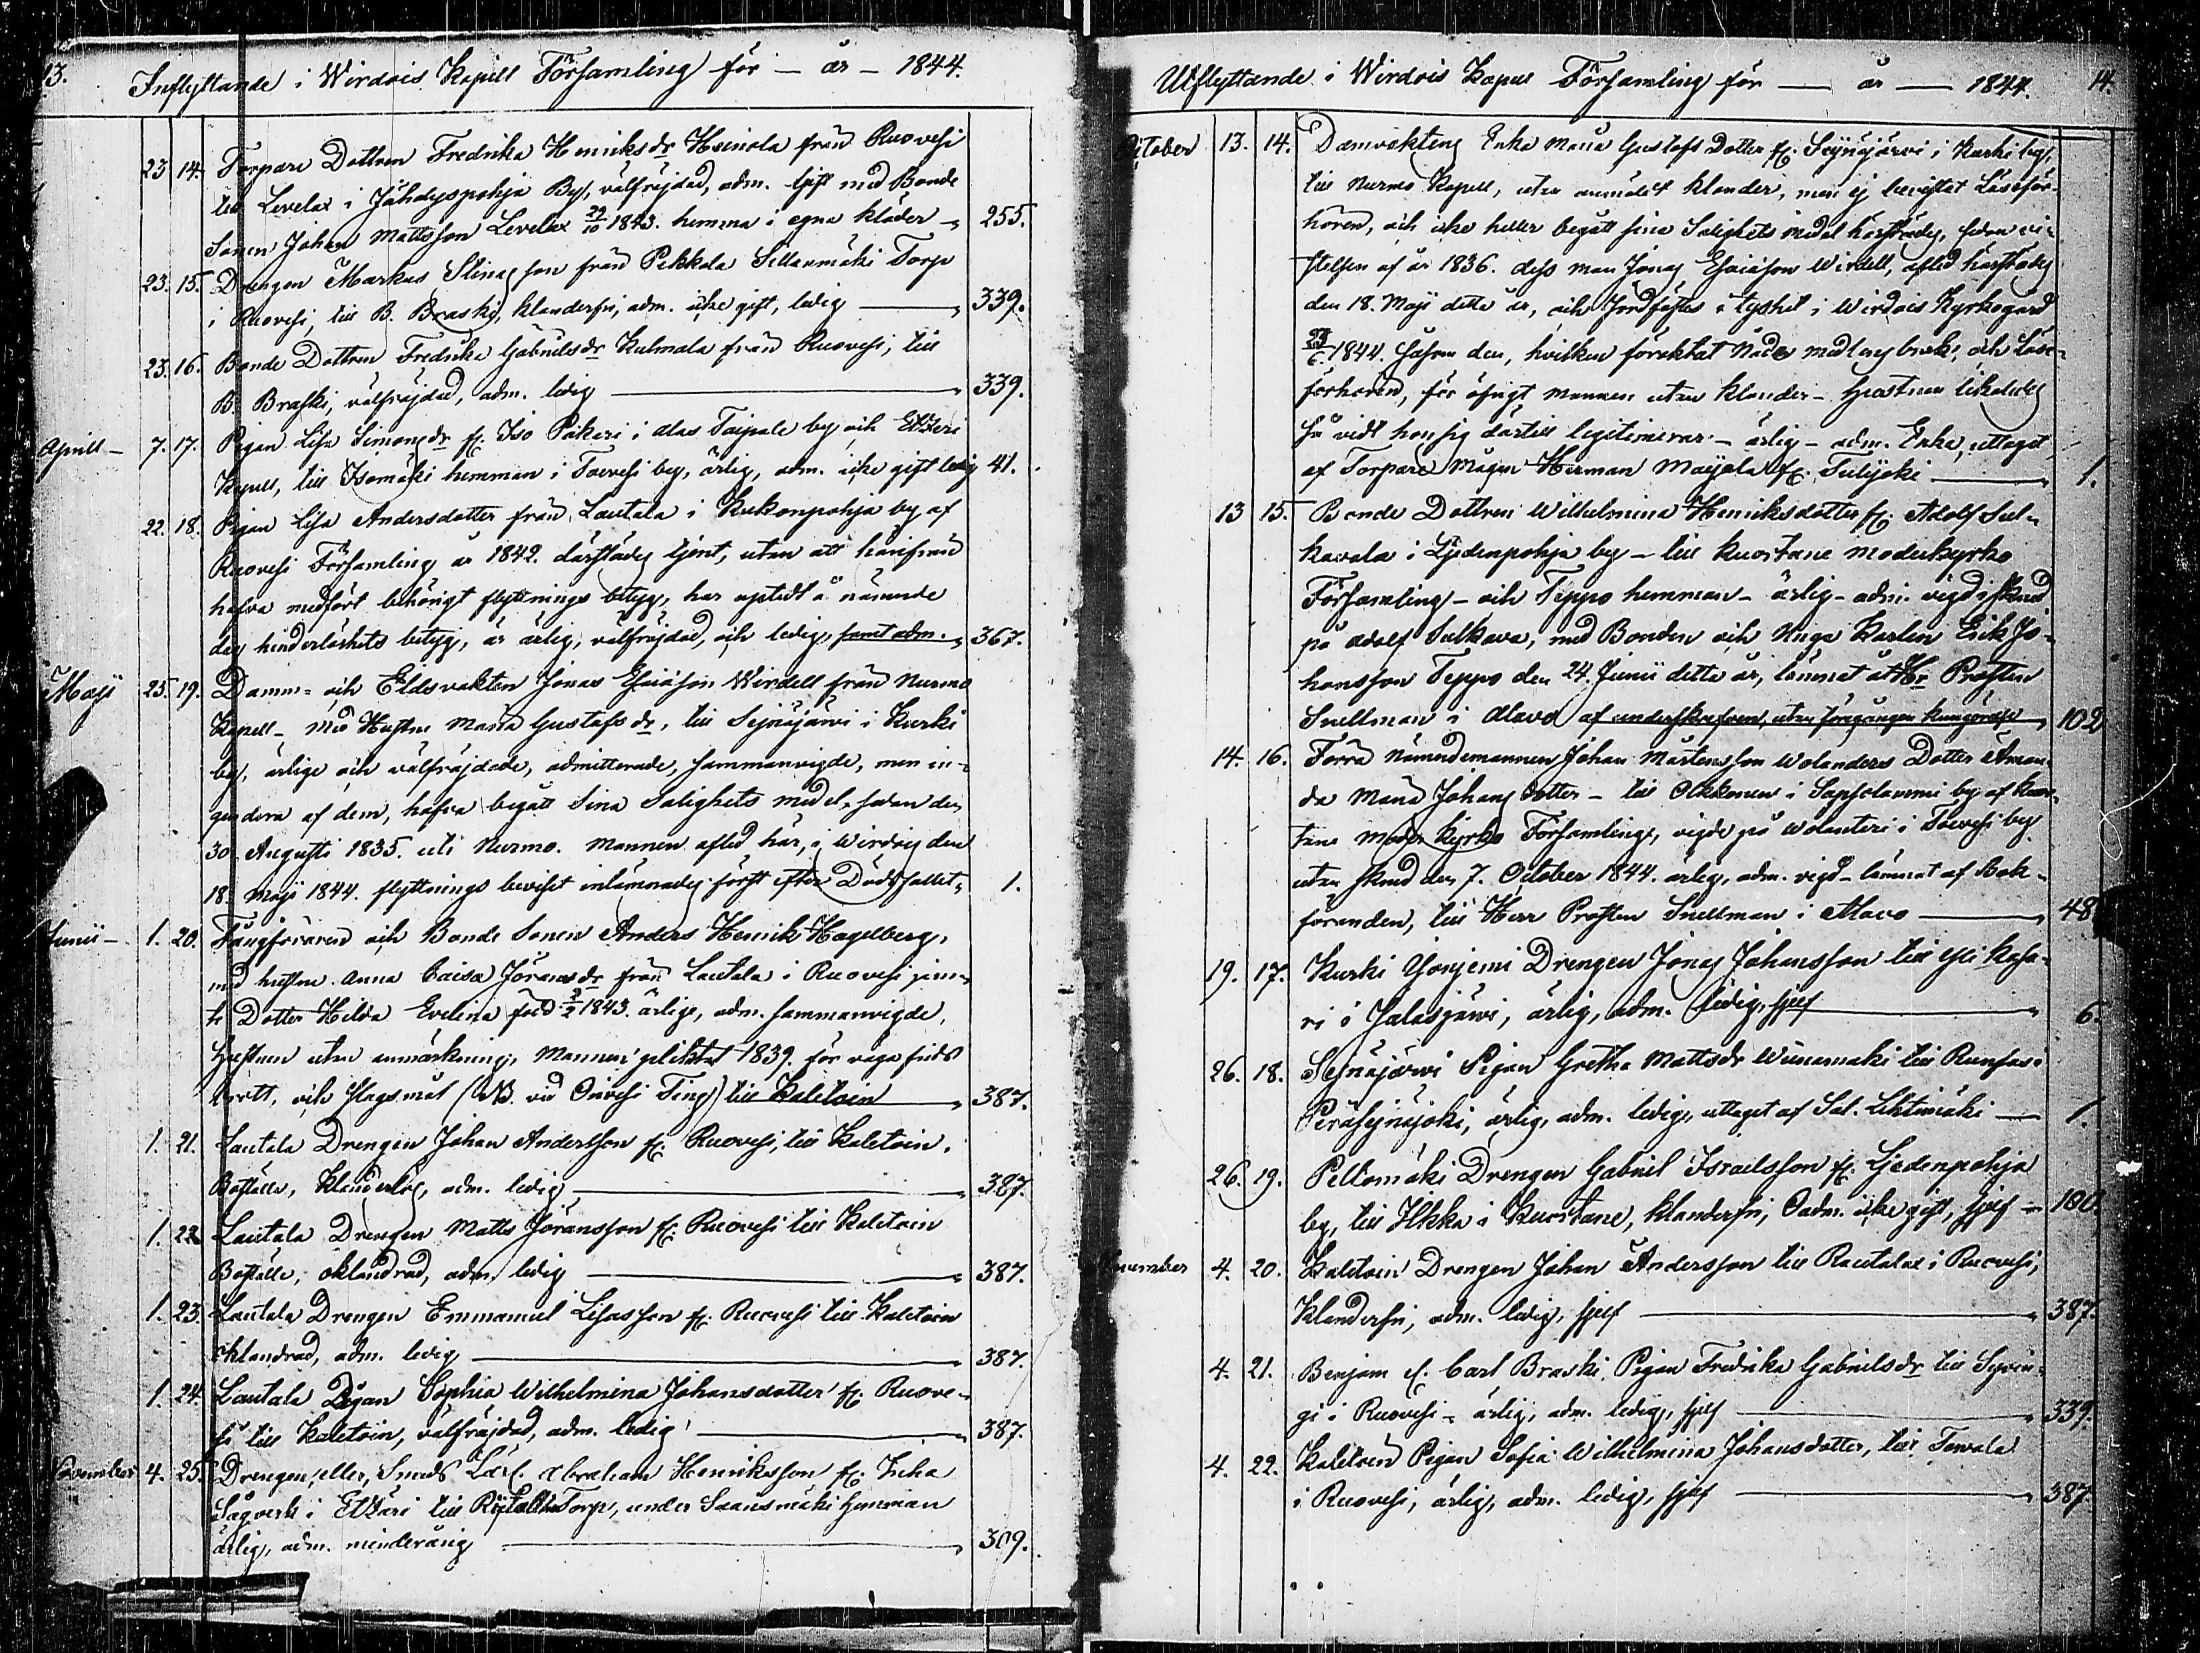 13.
Inflyttande i Wirdois Kapell Församling för — år — 1844.
23 14. Torpare Dottren Fredrika Henriksdr Heinola från Ruovesi
till Levelax i Jähdyspohja By, välfräjdad, adm. Gift med Bonde
Sonen Johan Mattsson Levelax 29/10 1843. hemma i egna kläder — 255.
23. 15. Drengen Markus Stinasson från Pekkala Sillanmäki Torp
i Ruovesi, till B. Braski, klanderfri, adm. icke gift, ledig — 339.
23. 16. Bonde Dottren Fredrika Gabrielsdr Kulmala från Ruovesi, till
B. Braski, välfräjdad, adm. ledig — 339.
Aprill — 7. 17. Pigan Lisa Simonsdr fr. Iso Pakari i Alas Taipale by och Etzeri
Kapell, till Isomäki hemman i Toevesi by, ärlig, adm. icke gift ledig 41.
22. 18. Pigan Lisa Andersdotter från Lautala i Kukonpohja by af
Ruovesi Församling år 1842. därstädes tjent, utan att härifrån
hafva medfört behörigt flyttnings betyg, har uptedt å nämnde
dag hinderlöshets betyg, är ärlig, välfräjdad, och ledig, samt adm. — 367.
Maji 25. 19. Damm- och Eldsvakten Jonas Esaiasson Wirdell från Nurmo
Kapell — med Hustru Maria Gustafsdr, till Sejnäjärwi i Kurki
by, ärlige och välfräjdade, admitterade, sammanvigde, men in-
gendera af dem, hafva begått Sina Salighets medel, sedan den
30. Augusti 1835. uti Nurmo. Mannen afled här, i Wirdois den
18. Maji 1844. flyttnings beviset inlämnades först efter Dödsfallet, 1.
Junii — 1. 20. Fångföraren och Bonde Sonen Anders Henrik Hagelberg,
med hustru Anna Caisa Jöransdr från Lautala i Ruovesi, jem-
te Dotter Hilda Evelina född 3/2 1843. ärlige, adm. sammanvigde,
Hustrun utan anmärkning, Mannen pliktat 1839. för våga frids
brott, och slagsmål (NB. vid Ovivesi Ting) till Kaletoin — 387.
1. 21. Lautala Drengen Johan Andersson fr. Ruovesi, till Kaletoin
Boställe, Klanderlös, adm. ledig — 387.
1. 22. Lautala Drengen Matts Jöransson fr. Ruovesi till Kaletoin
Boställe, oklandrad, adm. ledig — 387.
1. 23. Lautala Drengen Emmanuel Lisasson fr. Ruovesi till Kaletoin
oklandrad, adm. ledig — 387.
1. 24. Lautala Pigan Sophia Wilhelmina Johansdotter fr. Ruove-
si till Kaletoin, välfräjdad, adm. ledig — 387.
November 4. 25. Drengen, eller, Smeds Lärl. Abraham Henriksson fr. Inha
Sågverk i Etzäri till Torp, under Saansmäki hemman
ärlig, adm. minderårig — 309.
14.
Utflyttande i Wirdois Kapell Församling för — år — 1844.
October 13. 14. Damvakten Enka Maria Gustafs Dotter fr. Sejnäjärvi i Kurki by,
till Nurmo Kapell, utan anmäldt klander, men ej bevistat Läseför-
hören, och icke heller begått sina Salighets medel härstädes, sedan vi-
stelsen af år 1836. dess man Jonas Esaiasson Wirdell, afled härstädes
den 18. Maji detta år, och Jordfästes i tysthet i Wirdois Kyrkogård
1844. såsom den, hvilken föraktat Nådes medlens bruk, och Läse-
förhören, för öfrigt mannen utan klander — Hustrun likaledes
så vidt hon sig därtill legitimerar — ärlig — adm. Enka, uttaget
af Torpare Mågen Herman Majala fr. Tulijoki — 1.
13 15. Bonde Dottren Wilhelmina Henriksdotter fr. Adolf Sul-
kavala i Ljedenpohja by — till Kuortane Moderkyrko
Församling — och Teppo hemman — ärlig — adm. vigd i
på Adolf Sulkava, med Bonden och Unga Karlen Erik Jo-
hansson Teppo den 24. Junii detta år, lämnat åt Hr Prosten
Snellman i Alavo af underskrefven, utan föregången kungörelse — 102
14. 16. Förra Nämndemannen Johan Mårtensson Wolanders Dotter Aman-
da Maria Johans dotter — till Okkonen i Sapsalammi by af Kuor-
tane Moder Kyrko Församling, vigde på Wolanteri i Toevesi by
utan den 7. October 1844. ärlig, adm. vigd — lämnat af Bok-
föranden, till Herr Prosten Snellman i Alavo — 48
19. 17. Kurki Drengen Jonas Johansson till Yli Kasa-
ri i Jalasjärvi, ärlig, adm. ledig, sjelf — 6.
26. 18. Sejnäjärvi Pigan Gretha Mattsdr Wiinamäki till
Peräsejnäjoki, ärlig, adm. ledig, uttaget af Sal. Lehtimäki — 1.
26. 19. Peltomäki Drengen Gabriel Israelsson fr. Ljedenpohja
by, till Ilkka i Kuortane, klanderfri, Oadm. icke gift, sjelf — 100
November 4. 20. Kaletoin Drengen Johan Andersson till Rautalax i Ruovesi,
Klanderfri, adm. ledig, sjelf — 387.
4. 21. Benjam fr. Carl Braski Pigan Fredrika Gabrielsdr till Syvin-
gi i Ruovesi — ärlig, adm. ledig, sjelf — 339.
4. 22. Kaletoin Pigan Sofia Wilhelmina Johansdotter, till Towala
i Ruovesi, ärlig, adm. ledig, sjelf — 387